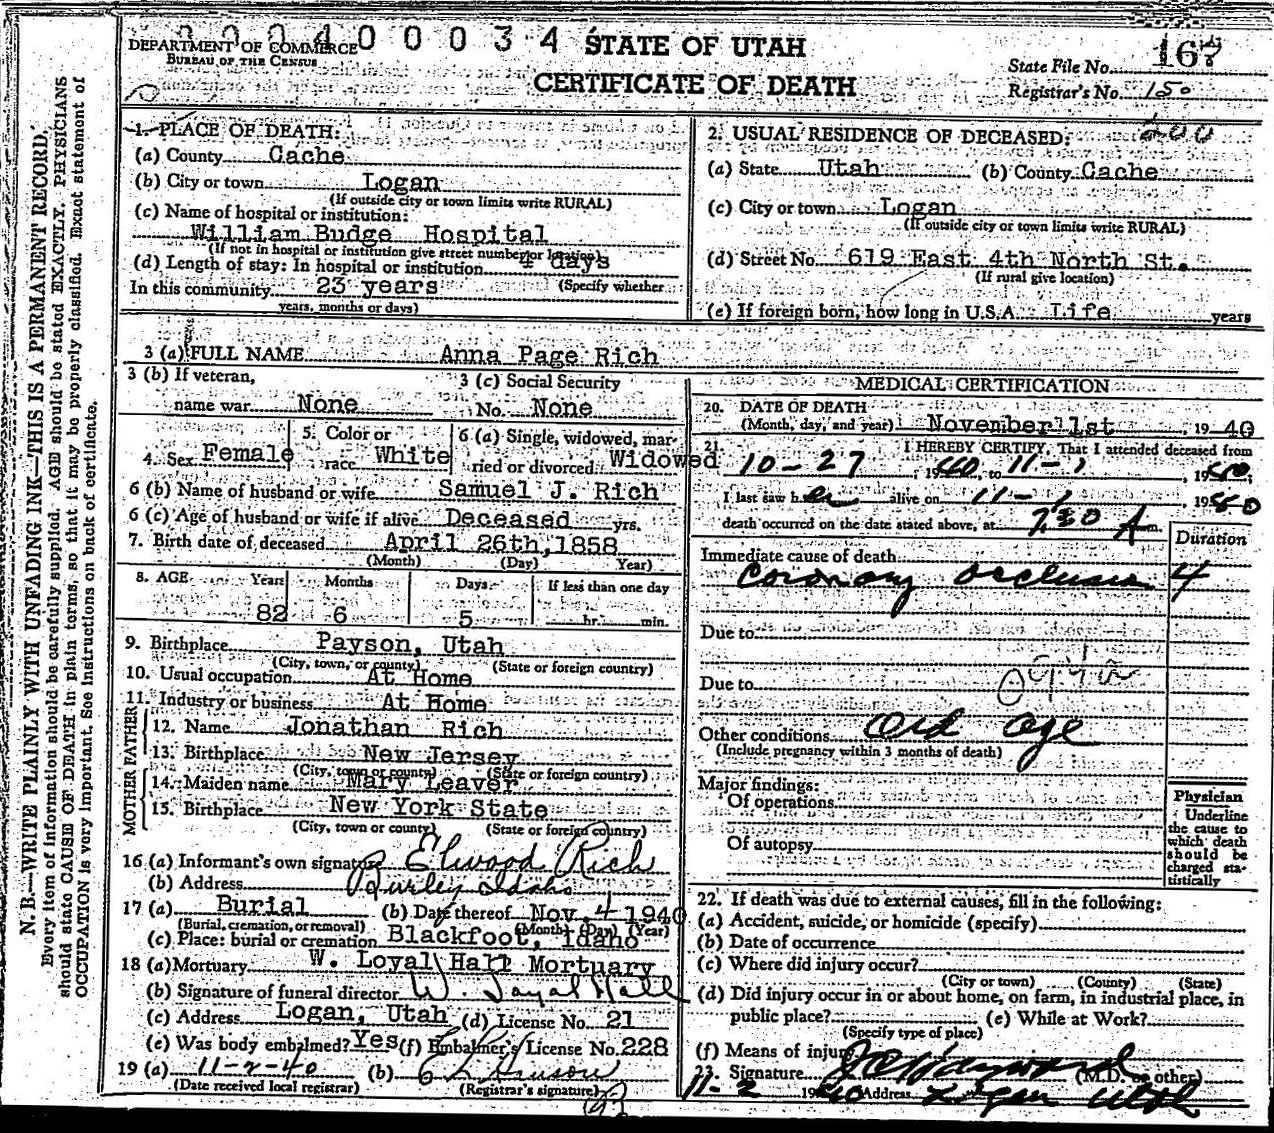 000400034
DEPARTMENT OF COMMERCE
BUREAU OF THE CENSUS
STATE OF UTAH
CERTIFICATE OF DEATH
State File No. 167
Registrar's No. 150
N. B.—WRITE PLAINLY WITH UNFADING INK—THIS IS A PERMANENT RECORD.
Every item of information should be carefully supplied. AGE should be stated EXACTLY. PHYSICIANS
should state CAUSE OF DEATH in plain terms, so that it may be properly classified. Exact statement of
OCCUPATION is very important. See instructions on back of certificate.
1. PLACE OF DEATH:
(a) County Cache
(b) City or town Logan
(If outside city or town limits write RURAL)
(c) Name of hospital or institution:
William Budge Hospital
(If not in hospital or institution give street number or location)
(d) Length of stay: In hospital or institution 4 days
In this community 23 years (Specify whether
years, months or days)
2. USUAL RESIDENCE OF DECEASED: 200
(a) State Utah (b) County Cache
(c) City or town Logan
(If outside city or town limits write RURAL)
(d) Street No. 619 East 4th North St.
(If rural give location)
(e) If foreign born, how long in U.S.A. Life years
3 (a) FULL NAME Anna Page Rich
3 (b) If veteran, name war None
3 (c) Social Security No. None
4. Sex Female
5. Color or race White
6 (a) Single, widowed, married or divorced Widowed
6 (b) Name of husband or wife Samuel J. Rich
6 (c) Age of husband or wife if alive Deceased yrs.
7. Birth date of deceased April 26th, 1858
(Month) (Day) Year)
8. AGE Years Months Days If less than one day
82 6 5 hr. min.
9. Birthplace Payson, Utah
(City, town, or county) (State or foreign country)
10. Usual occupation At Home
11. Industry or business At Home
FATHER
12. Name Jonathan Rich
13. Birthplace New Jersey
(City, town or county) (State or foreign country)
MOTHER
14. Maiden name Mary Leaver
15. Birthplace New York State
(City, town or county) (State or foreign country)
16 (a) Informant's own signature Elwood Rich
(b) Address Burley Idaho
17 (a) Burial (b) Date thereof Nov. 4 1940
(Burial, cremation, or removal) (Month) (Day) (Year)
(c) Place: burial or cremation Blackfoot, Idaho
18 (a) Mortuary W. Loyal Hall Mortuary
(b) Signature of funeral director W. Loyal Hall
(c) Address Logan, Utah (d) License No. 21
(e) Was body embalmed? Yes (f) Embalmer's License No. 228
19 (a) 11-2-40 (b)
(Date received local registrar) (Registrar's signature)
MEDICAL CERTIFICATION
20. DATE OF DEATH
(Month, day, and year) November 1st, 1940
21. I HEREBY CERTIFY, That I attended deceased from
10-27, 1940, to 11-1, 1940;
I last saw her alive on 11-1 1940
death occurred on the date stated above, at 7:30 A m.
Duration
Immediate cause of death
Coronary occlusion 4
Due to
Due to
Other conditions Old age
(Include pregnancy within 3 months of death)
Major findings:
Of operations
Of autopsy
Physician
Underline
the cause to
which death
should be
charged sta-
tistically
22. If death was due to external causes, fill in the following:
(a) Accident, suicide, or homicide (specify)
(b) Date of occurrence
(c) Where did injury occur?
(City or town) (County) (State)
(d) Did injury occur in or about home, on farm, in industrial place, in
public place? (e) While at Work?
(Specify type of place)
(f) Means of injury
23. Signature (M.D. or other)
11-2 1940 Address Logan Utah